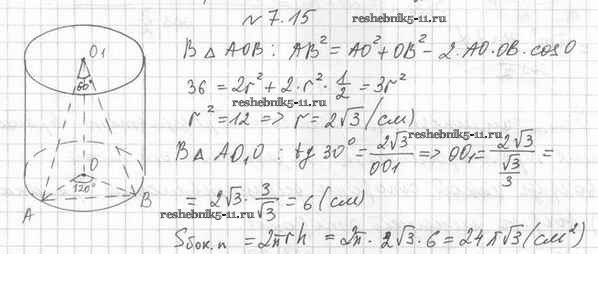 № 7.15
reshebnik5-11.ru
O1
60°
O
120°
A
B
В Δ AOB: AB² = AO² + OB² − 2·AO·OB·cosO
36 = 2r² + 2·r²·1/2 = 3r²
reshebnik5-11.ru
r² = 12 => r = 2√3 (см)
reshebnik5-11.ru
В Δ AO₁O : tg 30° = 2√3/OO1 => OO₁ = 2√3/(√3/3) =
= 2√3 · 3/√3 = 6 (см)
reshebnik5-11.ru
Sбок.п = 2πrh = 2π · 2√3 · 6 = 24π√3 (см²)